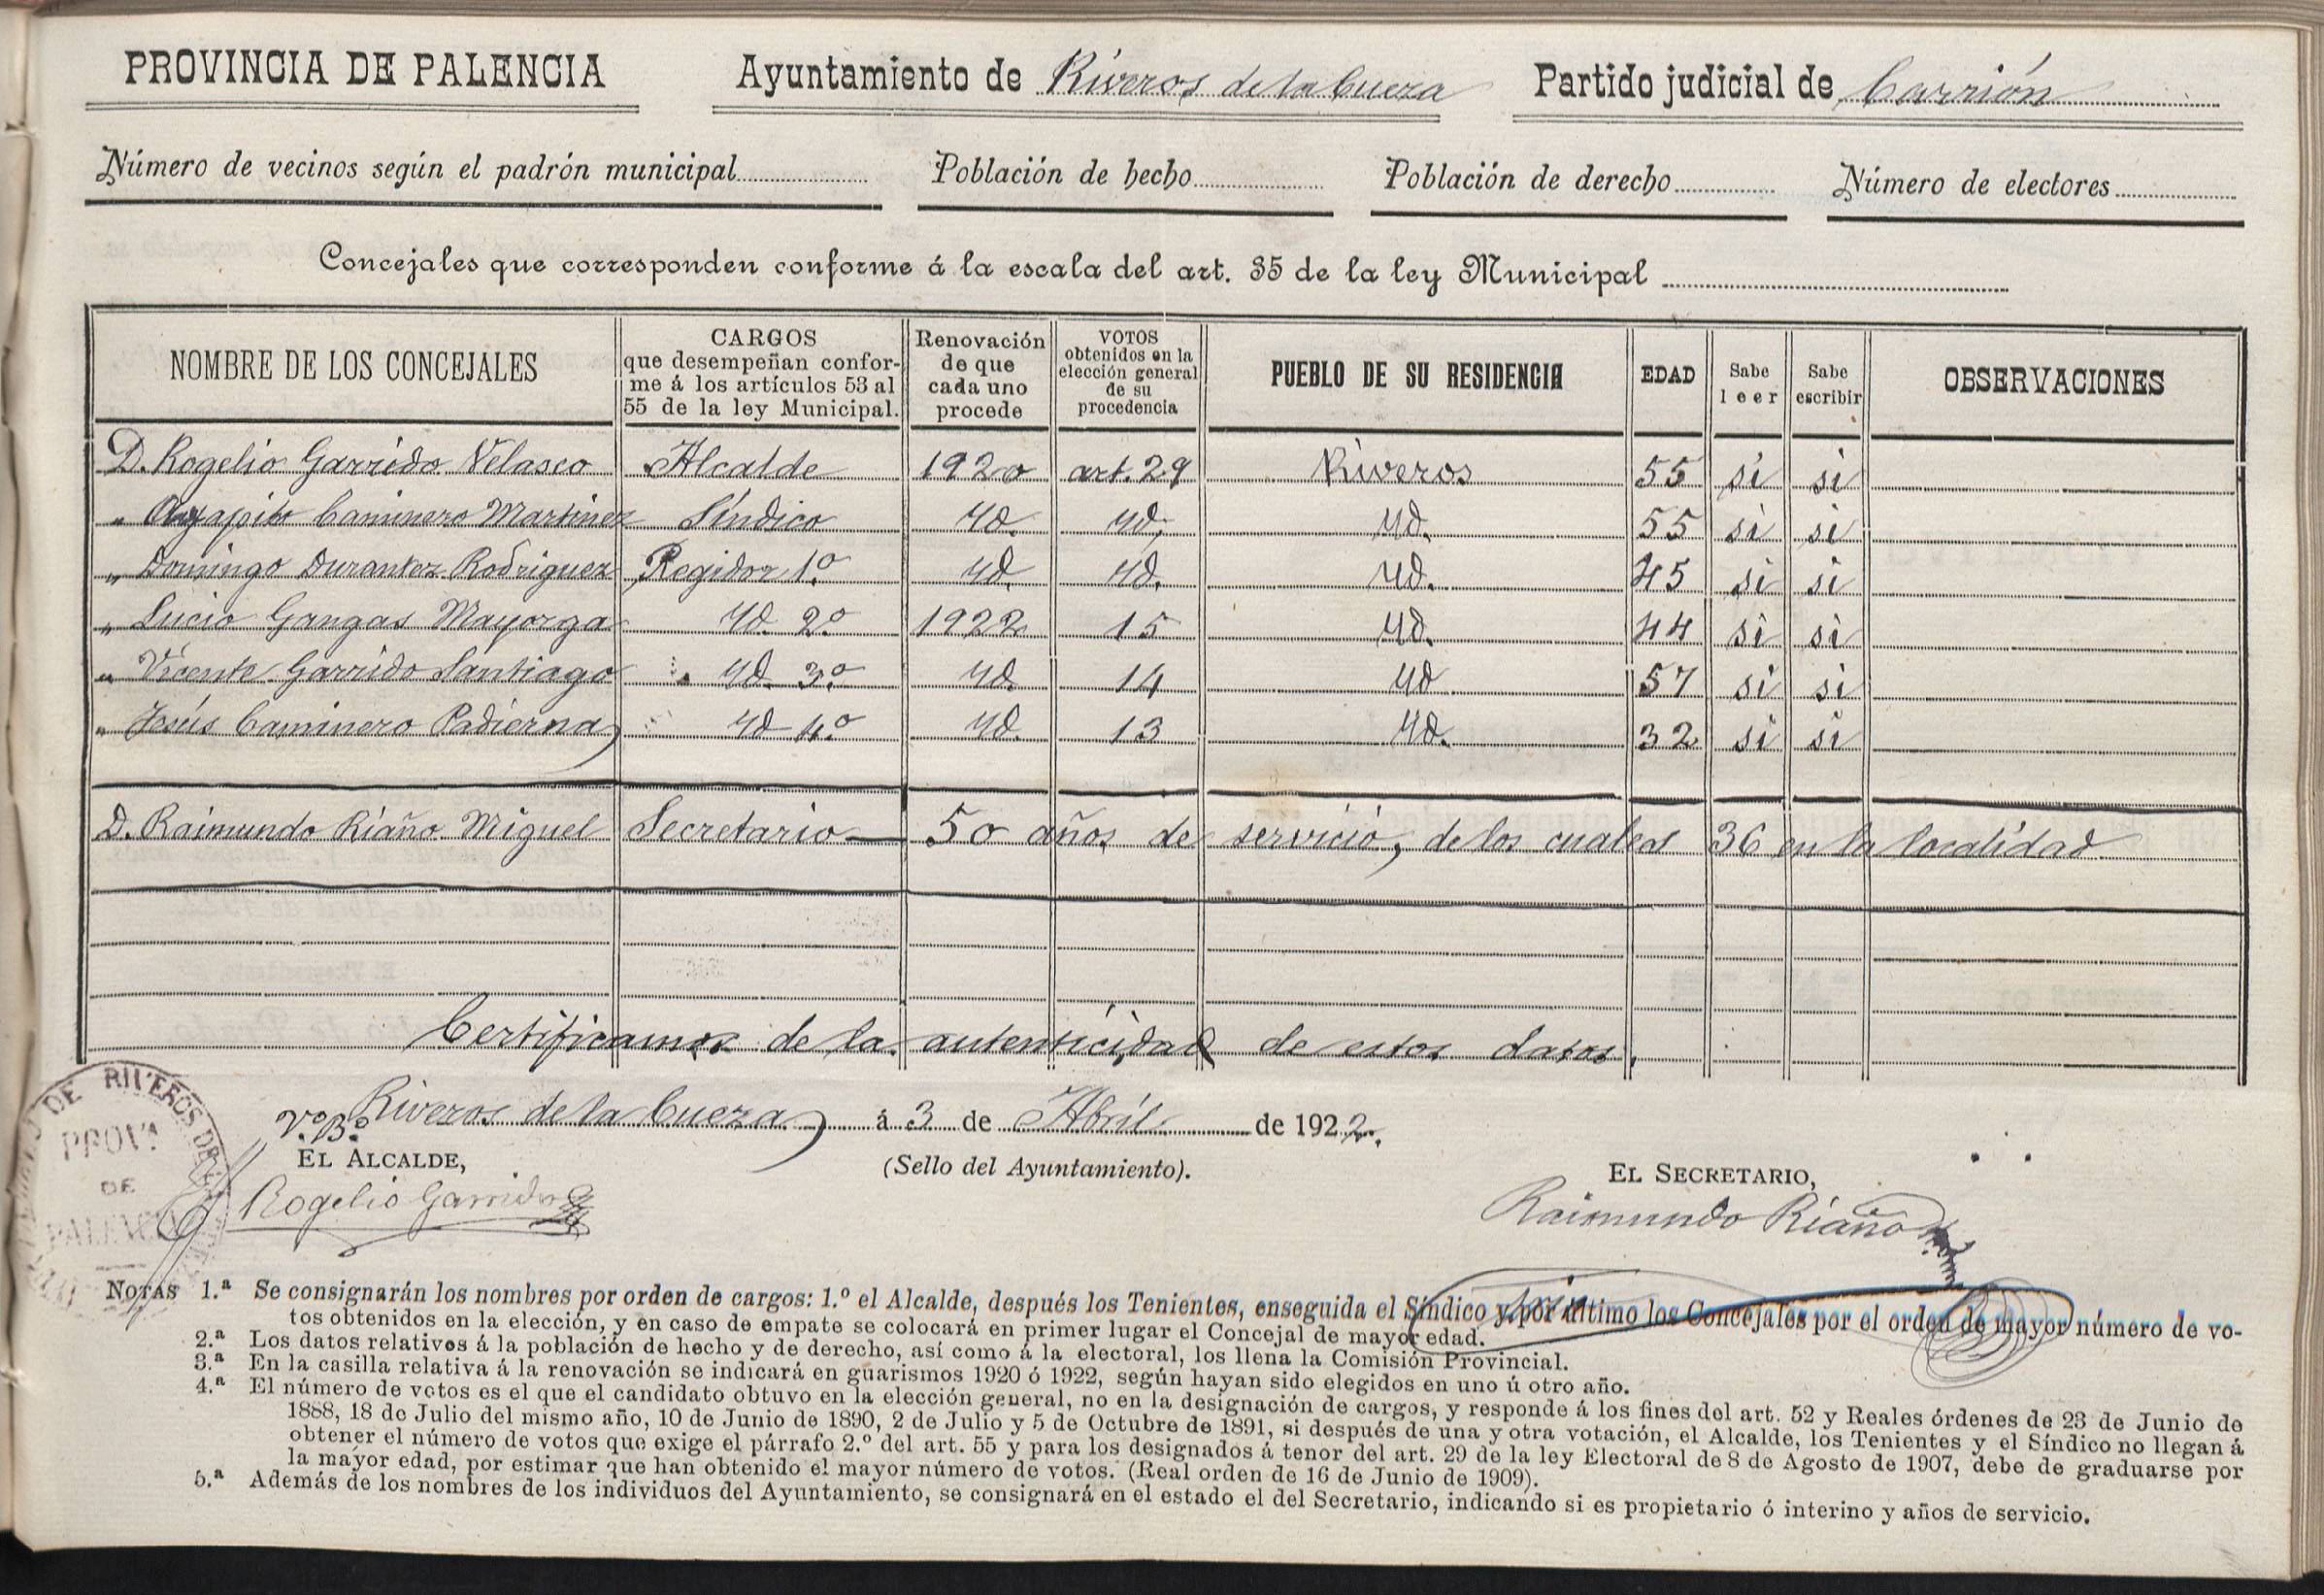 PROVINCIA DE PALENCIA Ayuntamiento de Riveros de la Cueza Partido judicial de Carrión
Número de vecinos según el padrón municipal Población de hecho Población de derecho Número de electores
Concejales que corresponden conforme á la escala del art. 35 de la ley Municipal
NOMBRE DE LOS CONCEJALES CARGOS que desempeñan conforme á los artículos 53 al 55 de la ley Municipal. Renovación de que cada uno procede VOTOS obtenidos en la elección general de su procedencia PUEBLO DE SU RESIDENCIA EDAD Sabe leer Sabe escribir OBSERVACIONES
D. Rogelio Garrido Velasco Alcalde 1920 art. 29 Riveros 55 si si
" Agapito Caminero Martinez Síndico Yd. Yd. Yd. 55 si si
" Domingo Durantez Rodriguez Regidor 1.º Yd. Yd. Yd. 45 si si
" Lucio Gangas Mayorga Yd. 2.º 1922 15 Yd. 44 si si
" Vicente Garrido Santiago Yd. 3.º Yd. 14 Yd 57 si si
" Jesús Caminero Padierna Yd 4.º Yd. 13 Yd. 32 si si
D. Raimundo Riaño Miguel Secretario — 50 años de servicio, de los cuales 36 en la localidad
Certificamos de la autenticidad de estos datos.
Riveros de la Cueza á 3 de Abril de 1922.
V.º B.º
EL ALCALDE, (Sello del Ayuntamiento). EL SECRETARIO,
Rogelio Garrido Raimundo Riaño
DE RIVEROS DE
PROVA
DE
PALENCIA
NOTAS 1.ª Se consignarán los nombres por orden de cargos: 1.º el Alcalde, después los Tenientes, enseguida el Síndico y por último los Concejales por el orden de mayor número de vo-
tos obtenidos en la elección, y en caso de empate se colocará en primer lugar el Concejal de mayor edad.
2.ª Los datos relativos á la población de hecho y de derecho, así como á la electoral, los llena la Comisión Provincial.
3.ª En la casilla relativa á la renovación se indicará en guarismos 1920 ó 1922, según hayan sido elegidos en uno ú otro año.
4.ª El número de votos es el que el candidato obtuvo en la elección general, no en la designación de cargos, y responde á los fines del art. 52 y Reales órdenes de 23 de Junio de
1888, 18 de Julio del mismo año, 10 de Junio de 1890, 2 de Julio y 5 de Octubre de 1891, si después de una y otra votación, el Alcalde, los Tenientes y el Síndico no llegan á
obtener el número de votos que exige el párrafo 2.º del art. 55 y para los designados á tenor del art. 29 de la ley Electoral de 8 de Agosto de 1907, debe de graduarse por
la mayor edad, por estimar que han obtenido el mayor número de votos. (Real orden de 16 de Junio de 1909).
5.ª Además de los nombres de los individuos del Ayuntamiento, se consignará en el estado el del Secretario, indicando si es propietario ó interino y años de servicio.